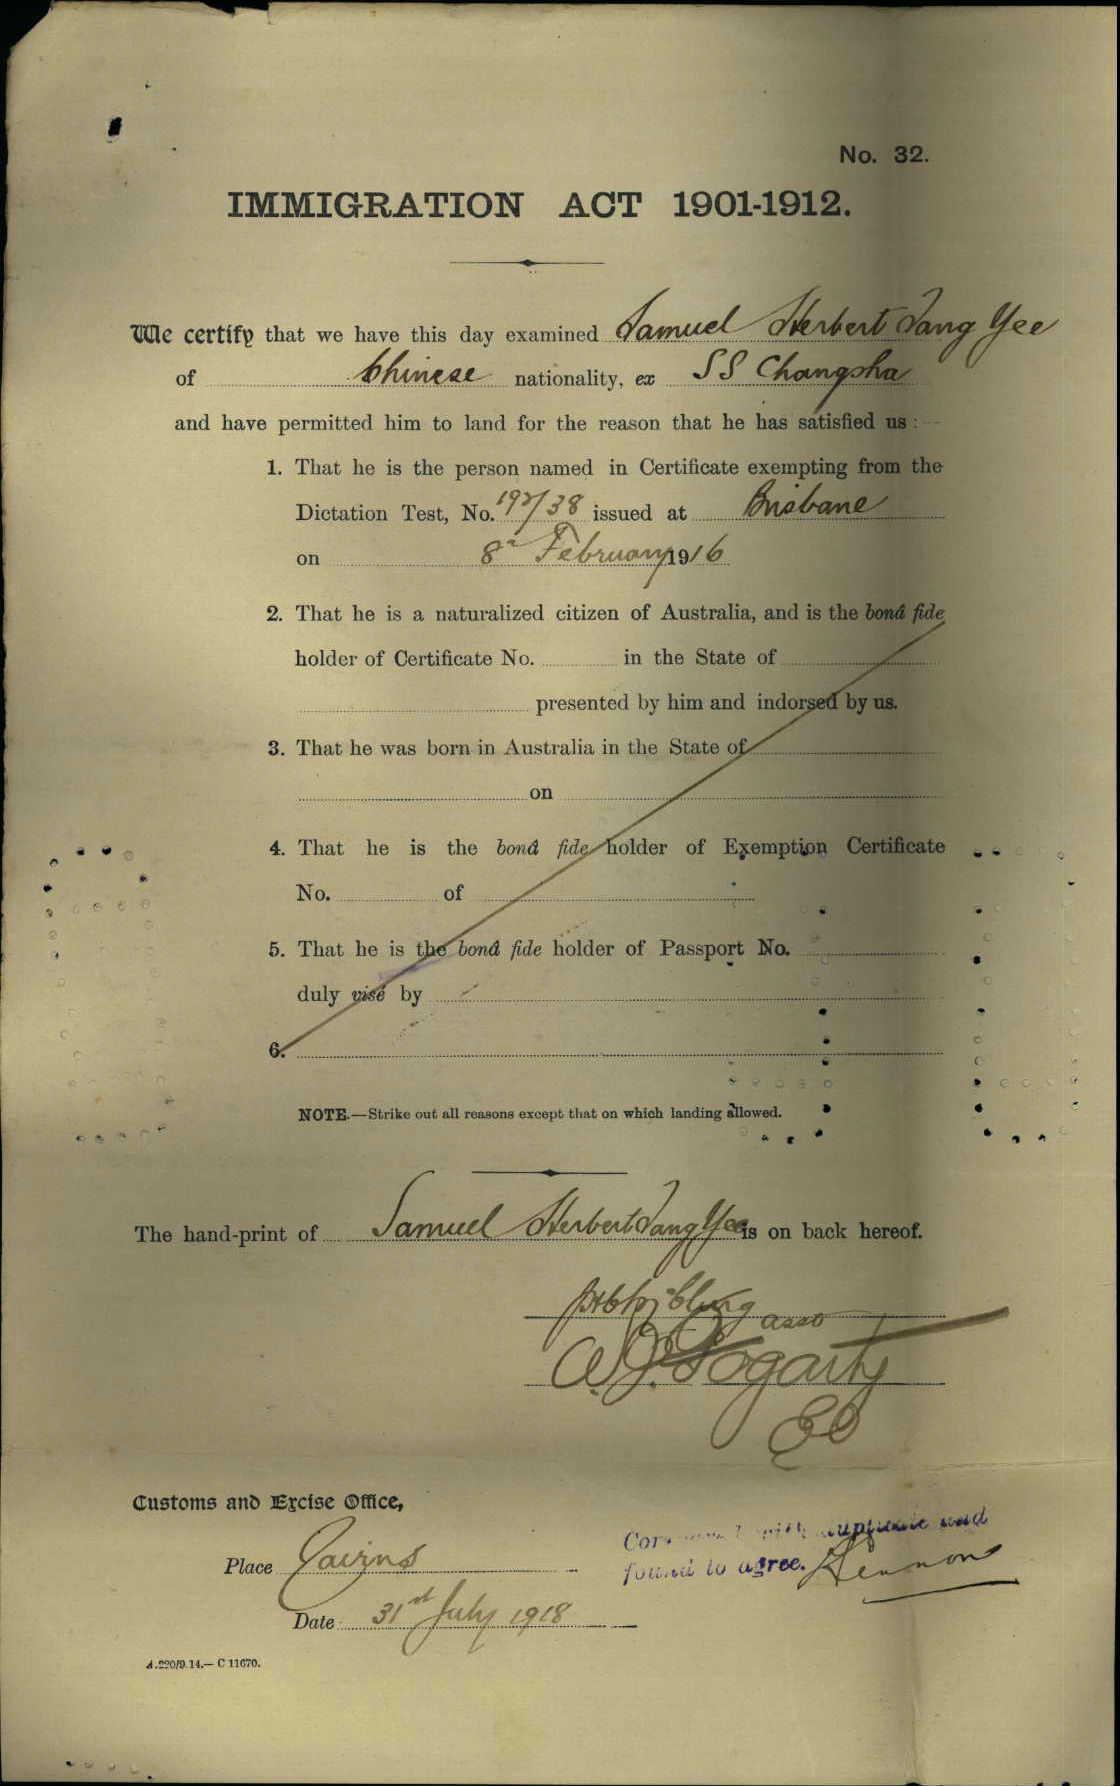 No. 32.
IMMIGRATION ACT 1901-1912.
We certify that we have this day examined Samuel Herbert Tang Yee
of Chinese nationality, ex SS Changsha
and have permitted him to land for the reason that he has satisfied us :—
1. That he is the person named in Certificate exempting from the
Dictation Test, No. 192/38 issued at Brisbane
on 8th February 1916
2. That he is a naturalized citizen of Australia, and is the bonâ fide
holder of Certificate No. in the State of
presented by him and indorsed by us.
3. That he was born in Australia in the State of
on
4. That he is the bonâ fide holder of Exemption Certificate
No. of
5. That he is the bonâ fide holder of Passport No.
duly visé by
6.
NOTE.—Strike out all reasons except that on which landing allowed.
The hand-print of Samuel Herbert Tang Yee is on back hereof.
asso
Fogarty
Customs and Excise Office,
with duplicate and
Place Cairns
found to agree.
Date 31st July 1918
A.220/9.14.— C 11670.